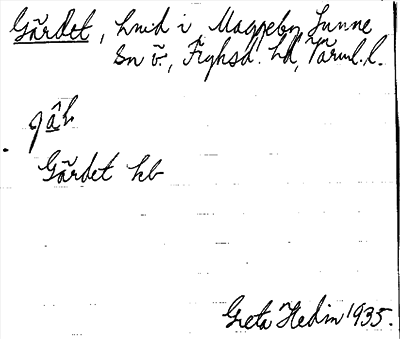 Gärdet, hmd i Maggeby Sunne
Sn ö., Fryksd. hd, Värml. l.
gâḷ
Gärdet kb
Greta Hedin 1935.